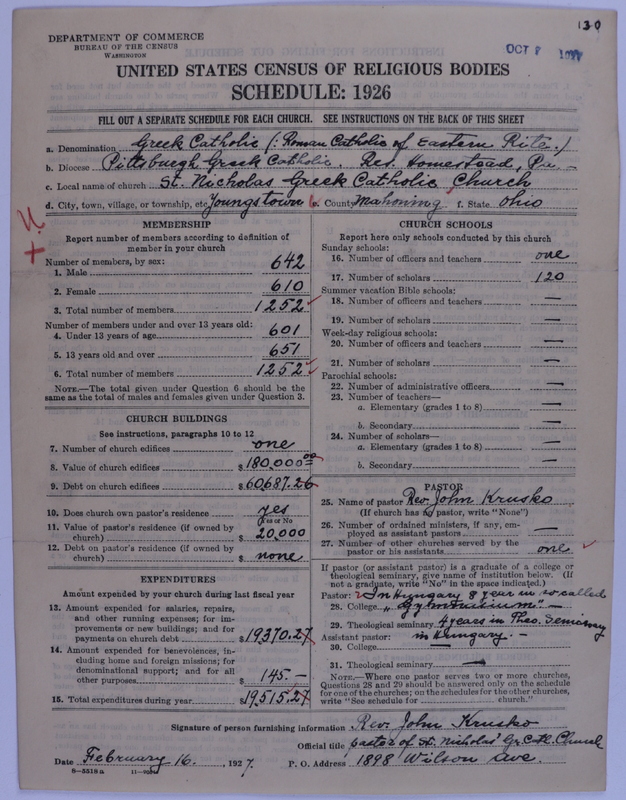 130
DEPARTMENT OF COMMERCE
BUREAU OF THE CENSUS
WASHINGTON
OCT 8
UNITED STATES CENSUS OF RELIGIOUS BODIES
SCHEDULE: 1926
FILL OUT A SEPARATE SCHEDULE FOR EACH CHURCH. SEE INSTRUCTIONS ON THE BACK OF THIS SHEET
a. Denomination Greek Catholic (: Roman Catholic of Eastern Rite.)
b. Diocese Pittsburgh Greek Catholic. Res. Homestead, Pa. —
c. Local name of church St. Nicholas Greek Catholic Church
d. City, town, village, or township, etc. Youngstown e. County Mahoning f. State Ohio
MEMBERSHIP
Report number of members according to definition of
member in your church
Number of members, by sex:
1. Male 642
2. Female 610
3. Total number of members 1252
Number of members under and over 13 years old:
4. Under 13 years of age 601
5. 13 years old and over 651
6. Total number of members 1252
NOTE.—The total given under Question 6 should be the
same as the total of males and females given under Question 3.
CHURCH BUILDINGS
See instructions, paragraphs 10 to 12
7. Number of church edifices one
8. Value of church edifices $ 180,000.00
9. Debt on church edifices $ 60,687.26
10. Does church own pastor's residence yes
(Yes or No)
11. Value of pastor's residence (if owned by
church) $ 20,000
12. Debt on pastor's residence (if owned by
church) $ none
EXPENDITURES
Amount expended by your church during last fiscal year
13. Amount expended for salaries, repairs,
and other running expenses; for im-
provements or new buildings; and for
payments on church debt $ 19370.27
14. Amount expended for benevolences, in-
cluding home and foreign missions; for
denominational support; and for all
other purposes $ 145.—
15. Total expenditures during year $ 19515.27
CHURCH SCHOOLS
Report here only schools conducted by this church
Sunday schools:
16. Number of officers and teachers one
17. Number of scholars 120
Summer vacation Bible schools:
18. Number of officers and teachers —
19. Number of scholars —
Week-day religious schools:
20. Number of officers and teachers —
21. Number of scholars —
Parochial schools:
22. Number of administrative officers —
23. Number of teachers—
a. Elementary (grades 1 to 8) —
b. Secondary —
24. Number of scholars—
a. Elementary (grades 1 to 8) —
b. Secondary —
PASTOR
25. Name of pastor Rev. John Krusko
(If church has no pastor, write "None")
26. Number of ordained ministers, if any, em-
ployed as assistant pastors —
27. Number of other churches served by the
pastor or his assistants one
If pastor (or assistant pastor) is a graduate of a college or
theological seminary, give name of institution below. (If
not a graduate, write "No" in the space indicated.)
Pastor: In Hungary 8 year in so called
28. College "Gymnasium" —
29. Theological seminary 4 years in Theo. Seminary
Assistant pastor: in Hungary. —
30. College —
31. Theological seminary —
NOTE.—Where one pastor serves two or more churches,
Questions 28 and 29 should be answered only on the schedule
for one of the churches; on the schedules for the other churches,
write "See schedule for church."
Signature of person furnishing information Rev. John Krusko
Official title pastor of St. Nicholas' Gr. Cath. Church
Date February 16, 1927. P. O. Address 1898 Wilson Ave.
8-5518 a